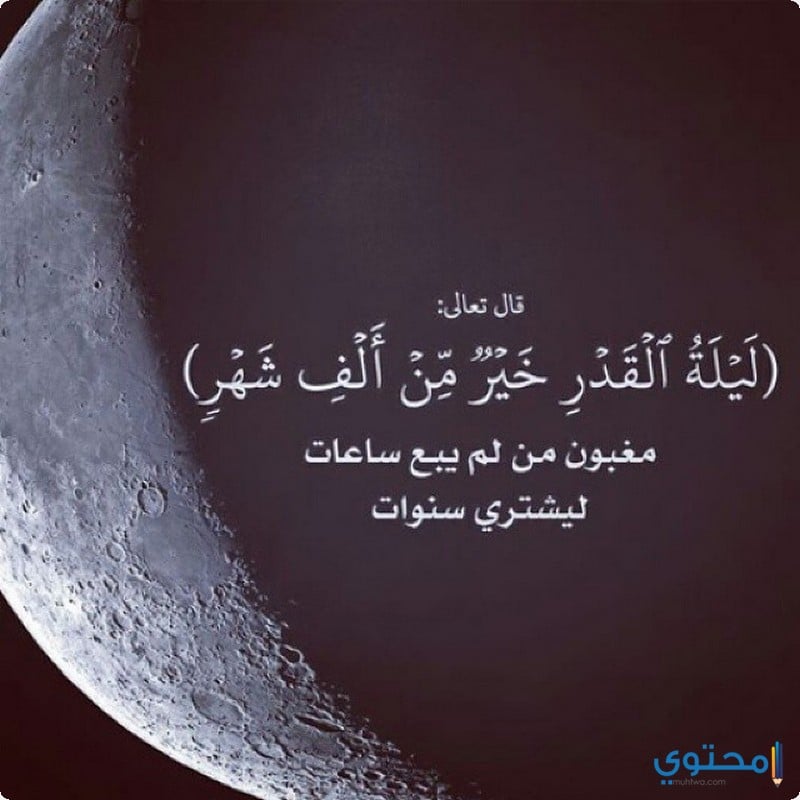 قال تعالى:
(لَيْلَةُ ٱلْقَدْرِ خَيْرٌ مِّنْ أَلْفِ شَهْرٍ)
مغبون من لم يبع ساعات
ليشتري سنوات
محتوي
muhtwa.com